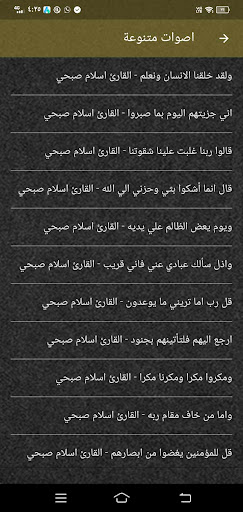 ٤:٢٥
اصوات متنوعة
ولقد خلقنا الانسان ونعلم - القارئ اسلام صبحي
اني جزيتهم اليوم بما صبروا - القارئ اسلام صبحي
قالوا ربنا غلبت علينا شقوتنا - القارئ اسلام صبحي
قال انما أشكوا بثي وحزني الي الله - القارئ اسلام صبحي
ويوم يعض الظالم علي يديه - القارئ اسلام صبحي
واذل سألك عبادي عني فاني قريب - القارئ اسلام صبحي
قل رب اما تريني ما يوعدون - القارئ اسلام صبحي
ارجع اليهم فلتأتينهم بجنود - القارئ اسلام صبحي
ومكروا مكرا ومكرنا مكرا - القارئ اسلام صبحي
واما من خاف مقام ربه - القارئ اسلام صبحي
قل للمؤمنين يغضوا من ابصارهم - القارئ اسلام صبحي